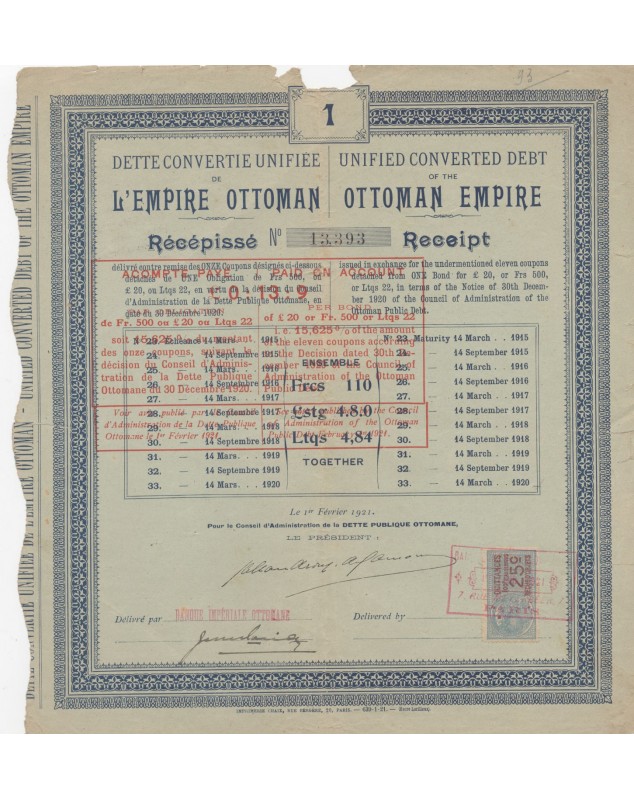 93
1
DETTE CONVERTIE UNIFIÉE
DE
L'EMPIRE OTTOMAN
UNIFIED CONVERTED DEBT
OF THE
OTTOMAN EMPIRE
Récépissé Nº 13,393 Receipt
délivré contre remise des ONZE Coupons désignés ci-dessous,
détachés de UNE Obligation de Frs 500, ou
£ 20, ou Ltqs 22, en vertu de la décision du Conseil
d'Administration de la Dette Publique Ottomane, en
date du 30 Décembre 1920.
issued in exchange for the undermentioned eleven coupons
detached from ONE Bond for £ 20, or Frs 500,
or Ltqs 22, in terms of the Notice of 30th Decem-
ber 1920 of the Council of Administration of the
Ottoman Public Debt.
ACOMPTE PAYÉ
PAID ON ACCOUNT
PER BOND
de Frs. 500 ou £ 20 ou Ltqs 22
of £ 20 or Frs 500 or Ltqs 22
soit 15,625 % du montant
des onze coupons, suivant la
décision du Conseil d'Adminis-
tration de la Dette Publique
Ottomane du 30 Décembre 1920.
i. e. 15,625 % of the amount
of the eleven coupons according
the Decision dated 30th de-
Council of
Administration of the Ottoman
Public
Voir avis publié par le Conseil
d'Administration de la Dette Publique
Ottomane le 1er Février 1921.
the Council
of Administration of the Ottoman
Public Debt February 1921.
Nº 23. Échéance 14 Mars. . . 1915
24. — 14 Septembre 1915
25. — 14 Mars. . . 1916
26. — 14 Septembre 1916
27. — 14 Mars. . . 1917
28. — 14 Septembre 1917
29. — 14 Mars. . . 1918
30. — 14 Septembre 1918
31. — 14 Mars. . . 1919
32. — 14 Septembre 1919
33. — 14 Mars. . . 1920
ENSEMBLE
Frcs 110
£stg 4.8.0
Ltqs 4,84
TOGETHER
Nº 23. Maturity 14 March . . 1915
24. — 14 September 1915
25. — 14 March . . 1916
26. — 14 September 1916
27. — 14 March . . 1917
28. — 14 September 1917
29. — 14 March . . 1918
30. — 14 September 1918
31. — 14 March . . 1919
32. — 14 September 1919
33. — 14 March . . 1920
Le 1er Février 1921.
Pour le Conseil d'Administration de la DETTE PUBLIQUE OTTOMANE,
LE PRÉSIDENT :
Délivré par BANQUE IMPÉRIALE OTTOMANE
Delivered by
QUITTANCES
25c
IMPRIMERIE CHAIX, RUE BERGÈRE, 20, PARIS. — 639-1-21. —
DETTE CONVERTIE UNIFIÉE DE L'EMPIRE OTTOMAN - UNIFIED CONVERTED DEBT OF THE OTTOMAN EMPIRE